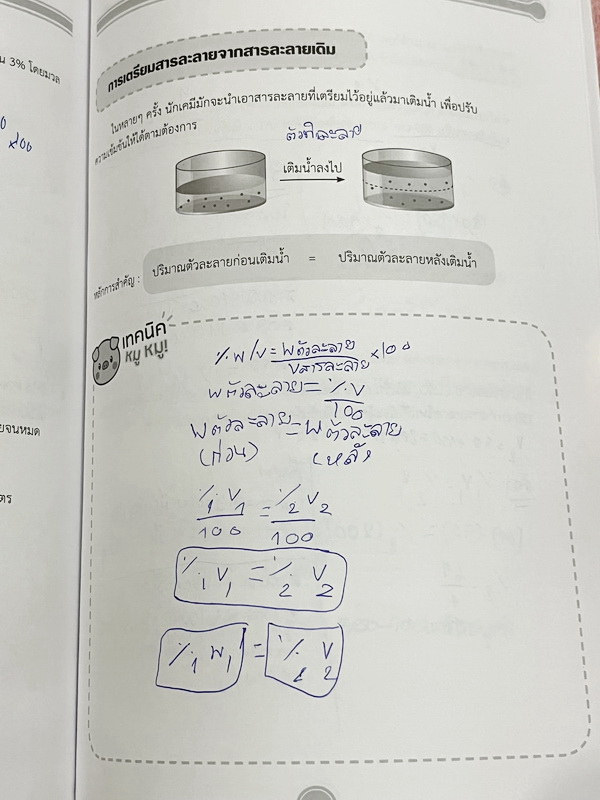 น 3% โดยมวล
×100
ยจนหมด
ตร
การเตรียมสารละลายจากสารละลายเดิม
ในหลายๆ ครั้ง นักเคมีมักจะนำเอาสารละลายที่เตรียมไว้อยู่แล้วมาเติมน้ำ เพื่อปรับ
ความเข้มข้นให้ได้ตามต้องการ
เติมน้ำลงไป
หลักการสำคัญ : ปริมาณตัวละลายก่อนเติมน้ำ = ปริมาณตัวละลายหลังเติมน้ำ
เทคนิค
หมู หมู!
% w/v = wตัวละลาย
vสารละลาย ×100
wตัวละลาย = % v
100
wตัวละลาย = wตัวละลาย
(ก่อน) (หลัง)
%1 V1 = %2 V2
100 100
%1 V1 = %2 V2
%1 W1 = %2 V2